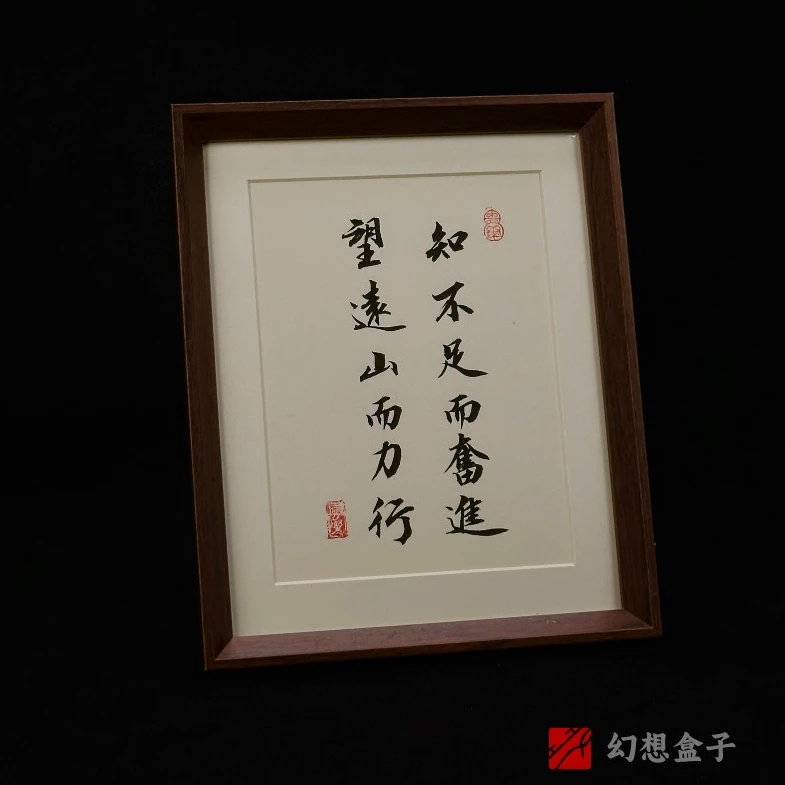 知不足而奮進
望遠山而力行
幻想盒子